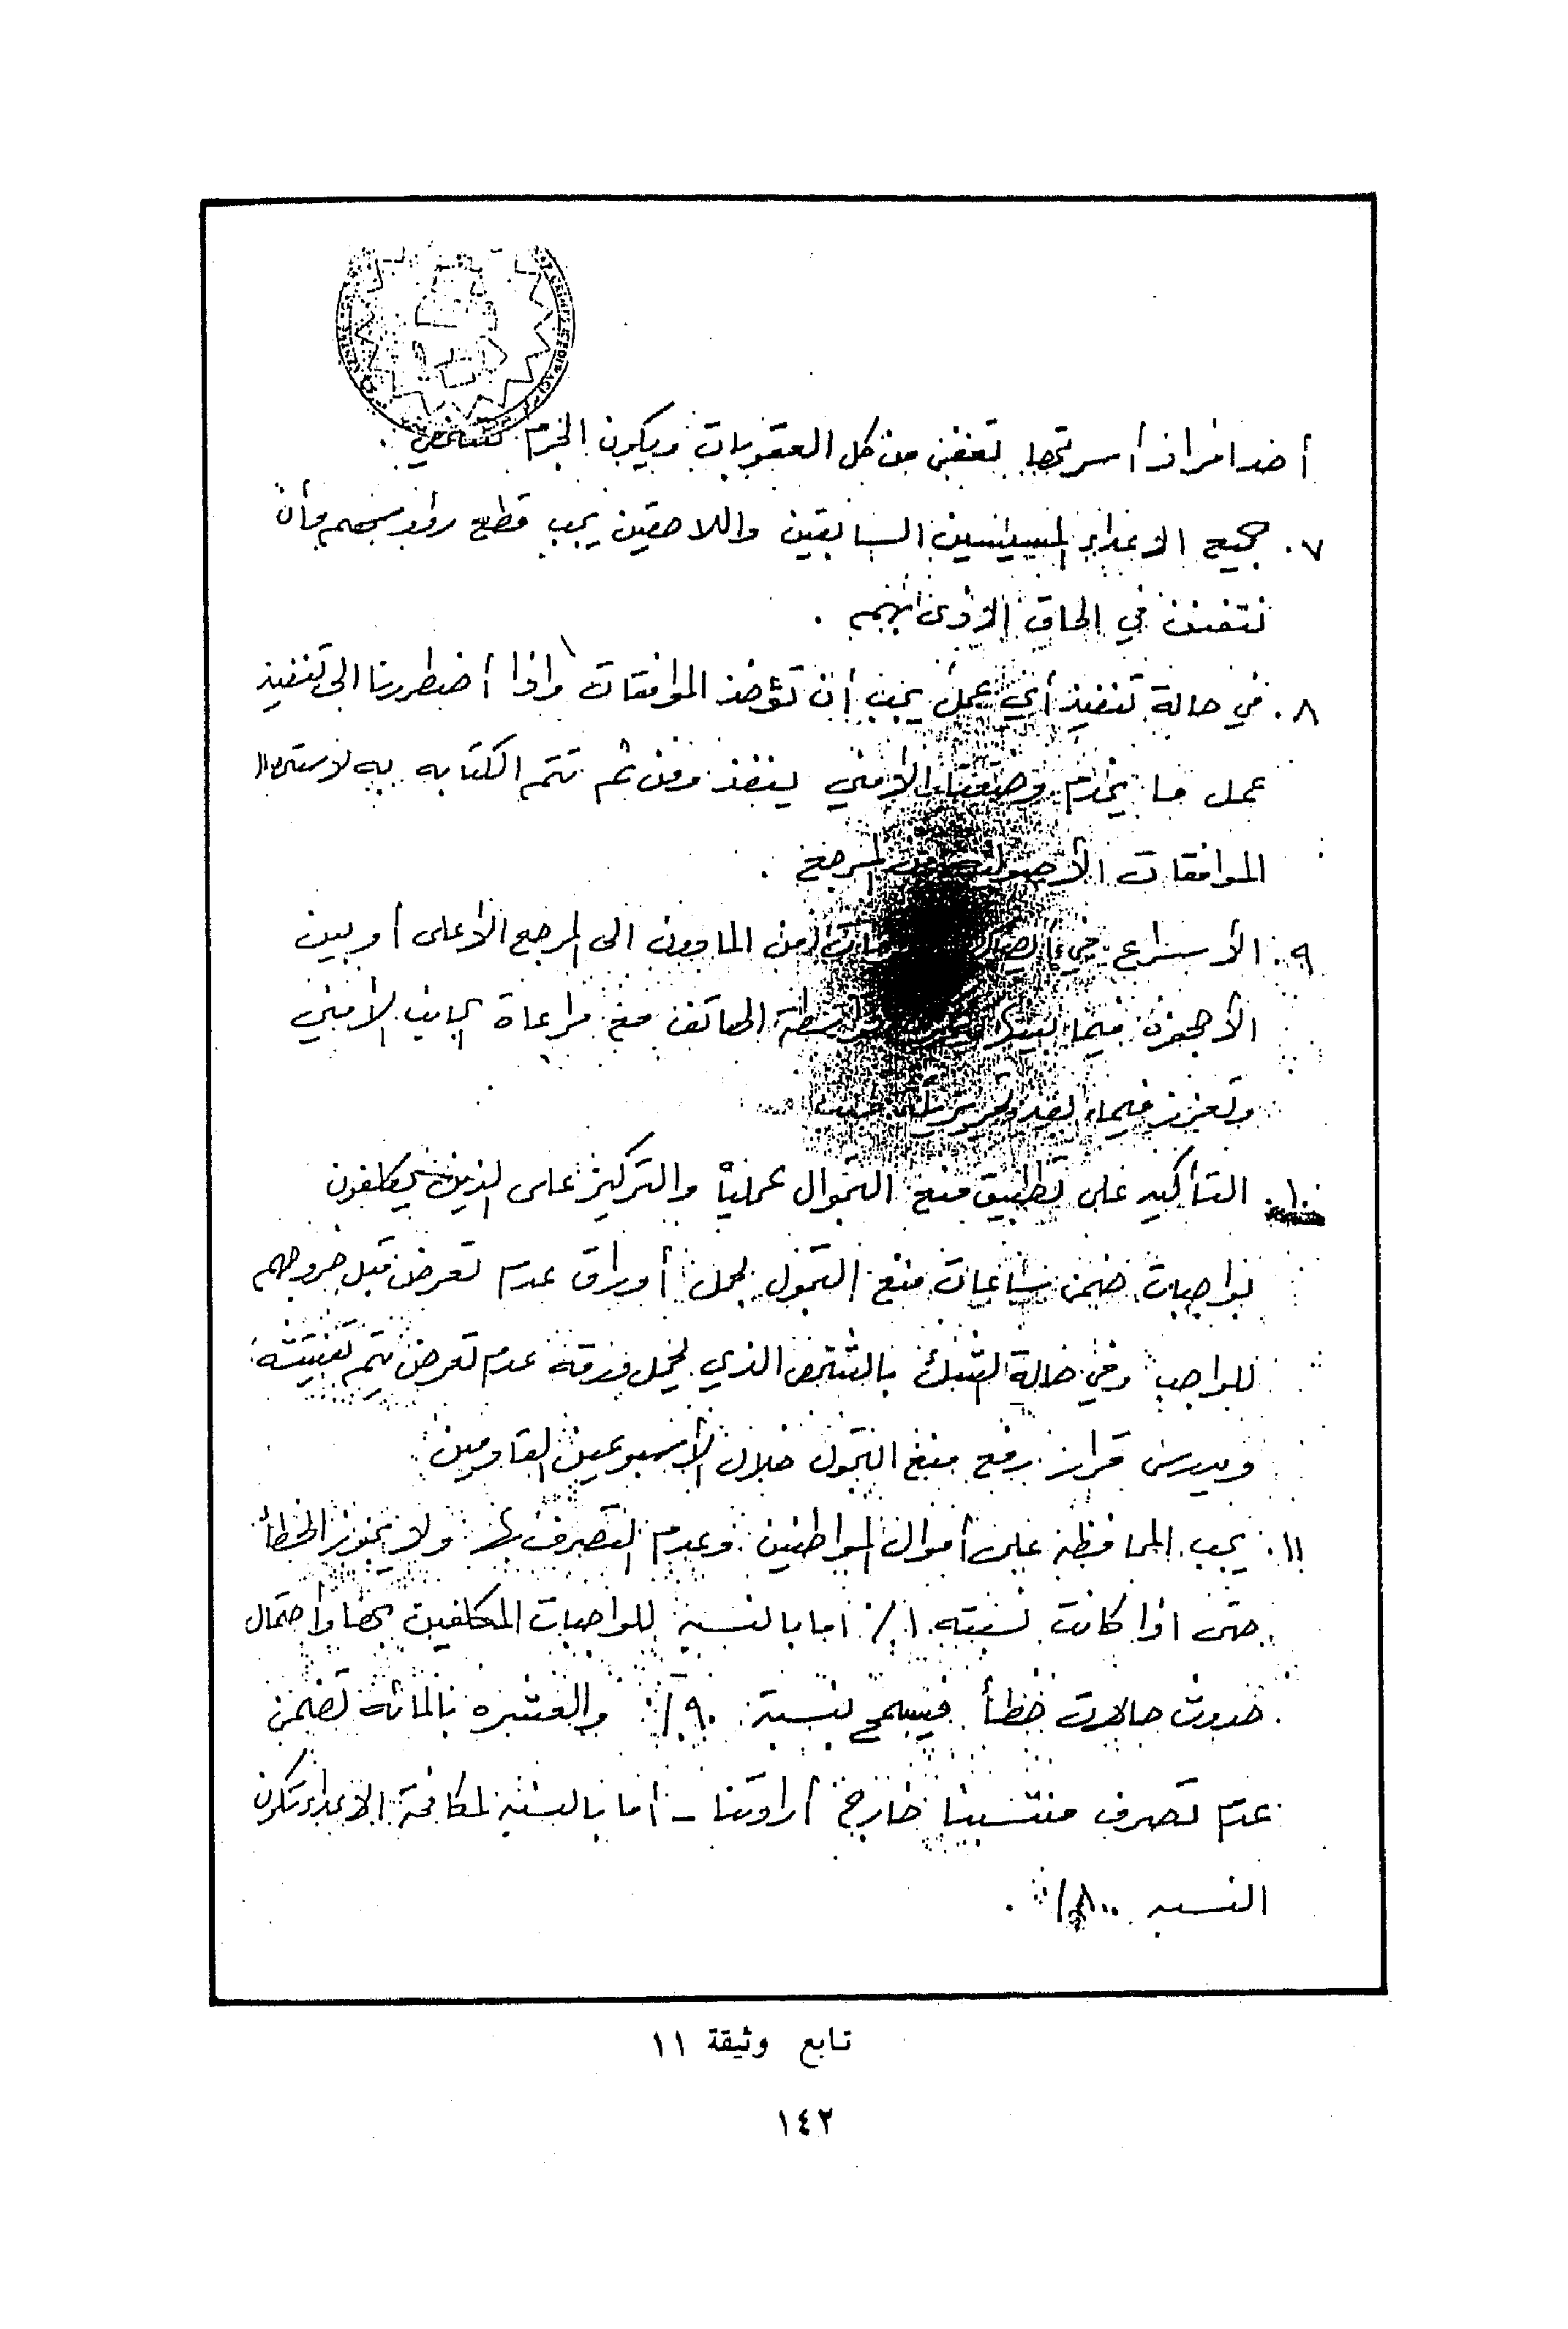 أحد افراد أسرتها تعفى من كل العقوبات ويكون الجرم شخصي .
٧. جميع الاعداء السياسيين السابقين واللاحقين يجب قطع وأن
نتفنن في الحاق الاذى بهم .
٨. في حالة تنفيذ أي عمل يجب أن تؤخذ الموافقات واذا أضطررنا الى تنفيذ
عمل ما يخدم وضعنا الامني ينفذ ومن ثم تتم الكتابه به لاستحصال
الموافقات الأصولية من المرجع .
٩. الأسراع في من المادون الى المرجع الأعلى أو بين
الأجهزة فيما بينها بواسطة الهاتف مع مراعاة الجانب الامني
وتعزز فيما بعد
١٠. التأكيد على تطبيق منع التجوال عملياً والتركيز على الذين يكلفون
بواجبات ضمن ساعات منع التجول لحمل أوراق عدم تعرض قبل خروجهم
للواجب وفي حالة الشك بالشخص الذي يحمل ورقة عدم تعرض يتم تفتيشه
ويدرس قرار رفع منع التجول خلال الأسبوعين القادمين
١١. يجب المحافظه على أموال المواطنين وعدم التصرف بها ولا يجوز الخطأ
حتى اذا كانت نسبته ١٪ اما بالنسبه للواجبات المكلفين بها واحتمال
حدوث حالات خطأ فيسمح بنسبة ٩٠٪ والعشره بالمائه تضمن
عدم تصرف منتسبينا خارج أرادتنا - أما بالنسبه لمكافحة الاعداء تكون
النسبه ٪ .
تابع وثيقة ١١
١٤٢